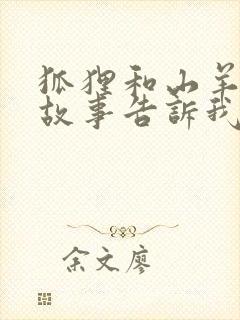 狐狸和山羊
故事告訴我
余文廖